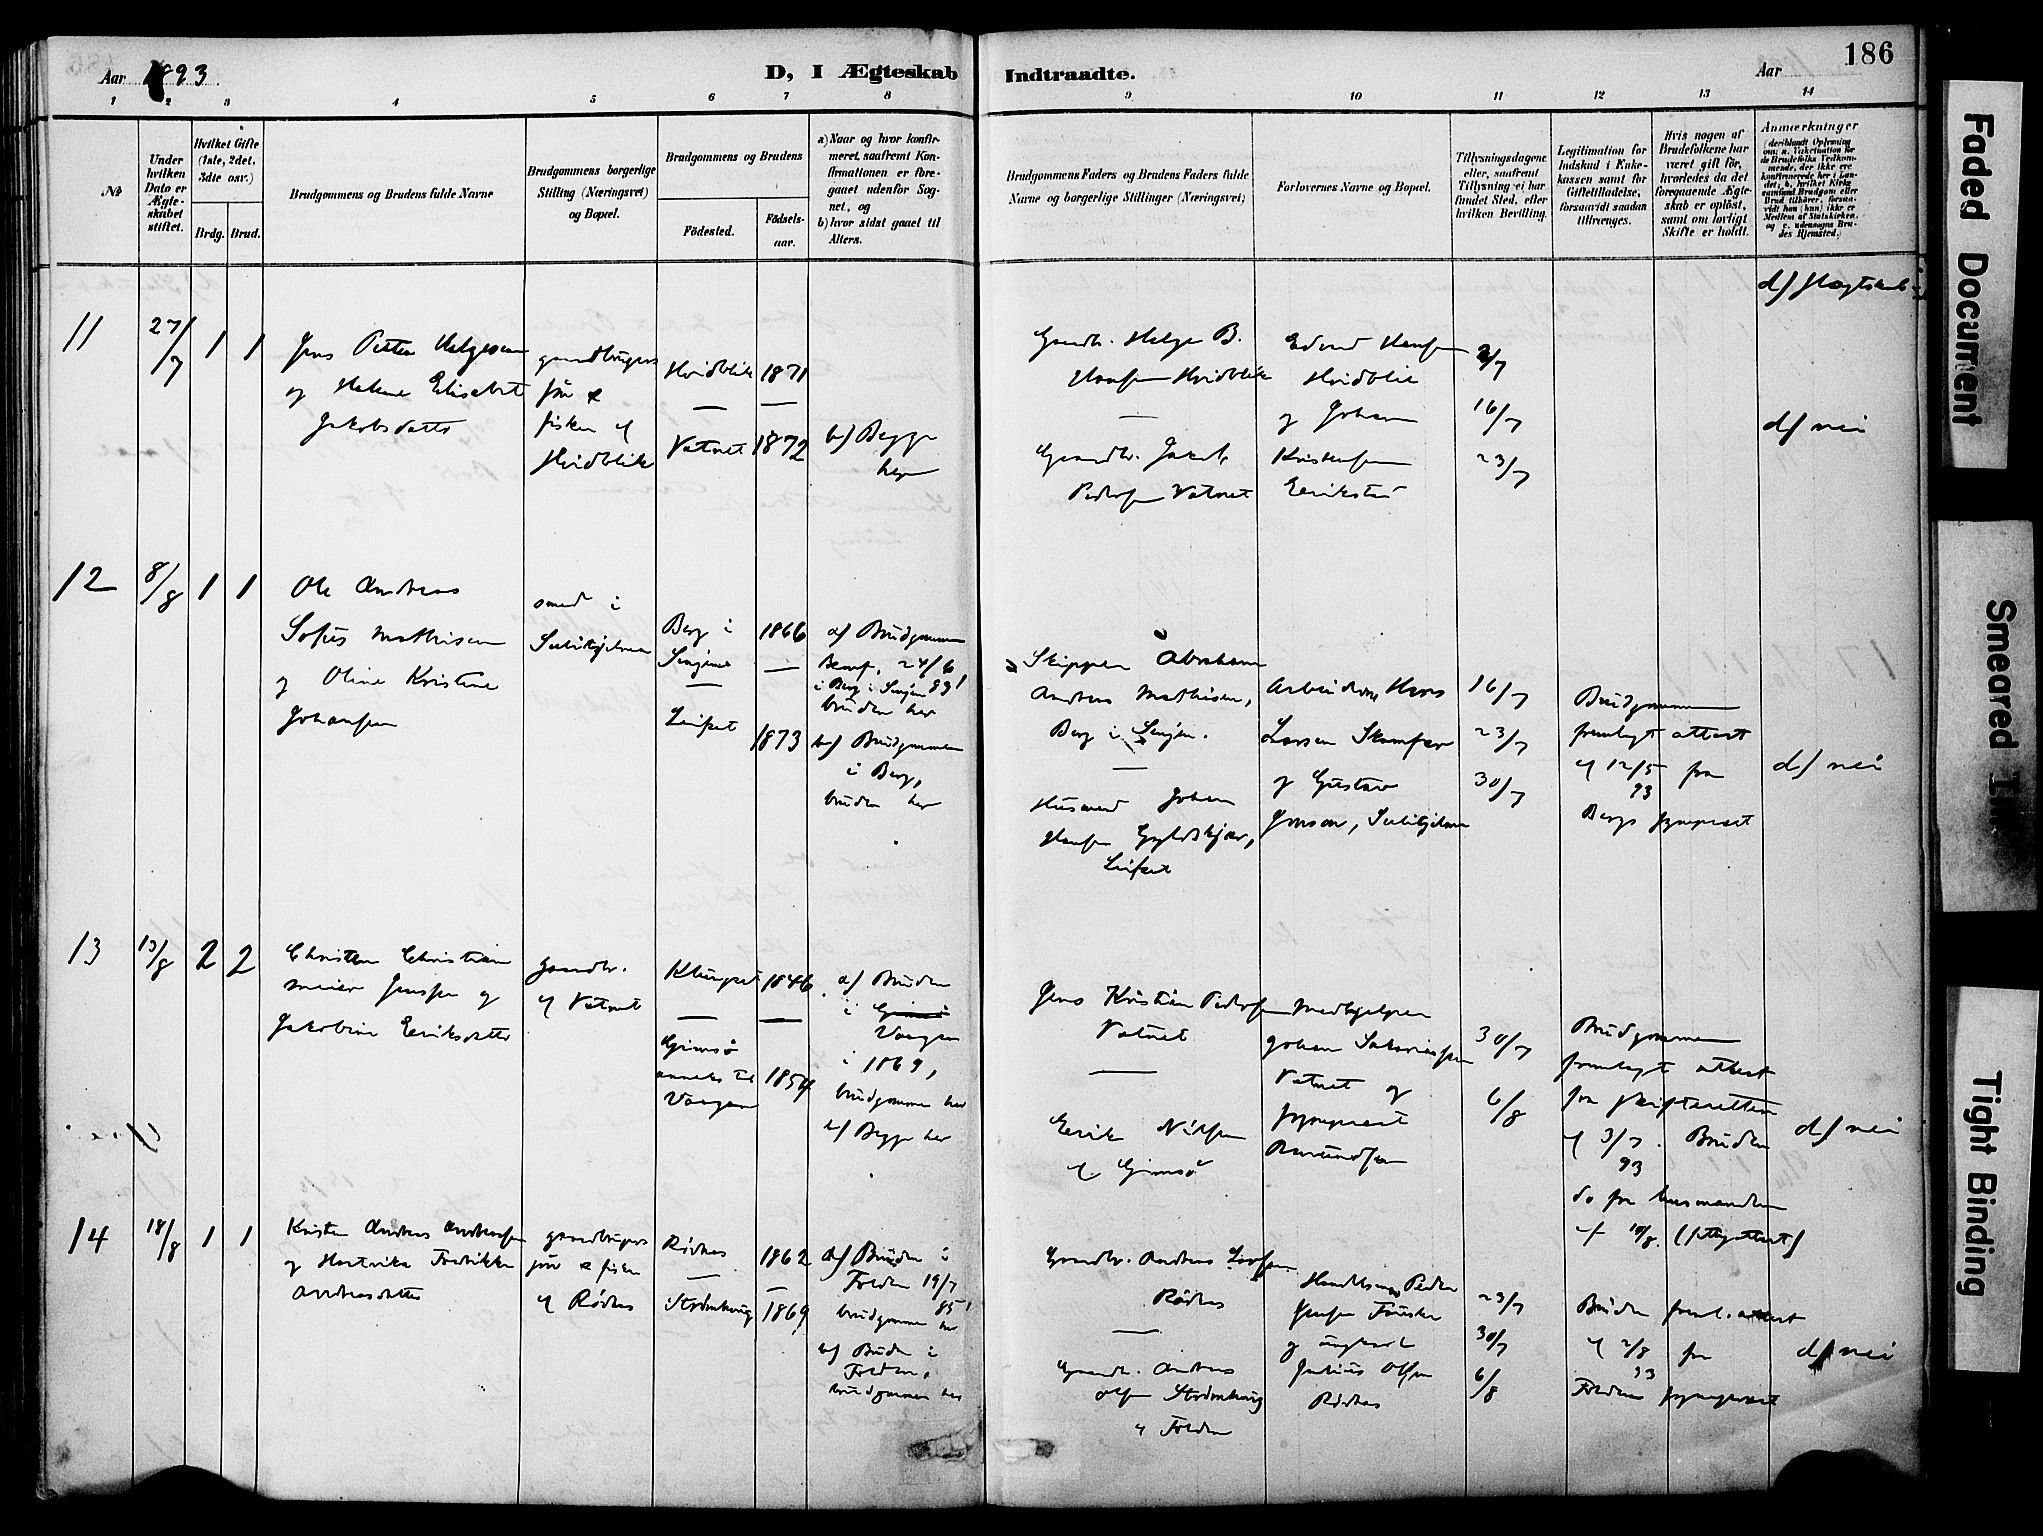 186
Aar 1893
D, I Ægteskab Indtraadte.
Aar
1 2 3 4 5 6 7 8 9 10 11 12 13 14
No
Under hvilken Dato er Ægteskabet stiftet.
Hvilket Gifte (1ste, 2det, 3dte osv.)
Brdg. Brud.
Brudgommens og Brudens fulde Navne
Brudgommens borgerlige Stilling (Næringsvei) og Bopæl.
Brudgommens og Brudens
Födested.
Födselsaar.
a) Naar og hvor konfirmeret, saafremt Konfirmationen er foregaaet udenfor Sognet, og
b) hvor sidst gaaet til Alters.
Brudgommens Faders og Brudens Faders fulde Navne og borgerlige Stillinger (Næringsvei)
Forlovernes Navne og Bopæl.
Tillysningsdagene eller, saafremt Tillysning ei har fundet Sted, efter hvilken Bevilling.
Legitimation for Indskud i Enkekassen samt for Giftetilladelse, forsaavidt saadan tiltrænges.
Hvis nogen af Brudefolkene har været gift før, hvorledes da det foregaaende Ægteskab er oplöst, samt om lovligt Skifte er holdt.
Anmærkninger
11
27/7
1 1
Jens Petter Helgesen
og Helene Elisabet
Jakobsdatter
gaardbrugers
søn &
fisker af
Hvidblik
Hvidblik
—
Vatnet
1871
—
1872
b) Begge
her
Gaardbr. Helge B.
Hansen Hvidblik
—
Gaardbr. Jakob
Pedersen Vatnet
Edvard Hansen
Hvidblik
og Johan
Kristensen
Erikstad
9/7
16/7
23/7
d) nei
12
8/8
1 1
Ole Andreas
Sofus Mathisen
og Oline Kristine
Johansen
smed i
Sulitjelma
Berg i
Senjen
—
Leifset
1866
—
1873
a) Brudgommen
konf. 24/6
i Berg i Senjen
bruden her
b) Brudgommen
i Berg,
bruden her
Skipper Abraham
Andreas Mathisen,
Berg i Senjen.
—
Husmand Johan
Hansen Gyldskjær,
Leifset
Arbeiderne Hans
Larsen
og Gustav
Jonson, Sulitjelma
16/7
23/7
30/7
Brudgommen
fremlagt attest
af 12/5 93 fra
Bergs sogneprest
d) nei
13
13/8
2 2
Christen Christian
Meier Jensen og
Jakobine Eriksdatter
gaardbr.
af Vatnet
Klungset
—
Gimsø
anneks til
Vaagan
1846
—
1854
a) Bruden
i
Vaagan
i 1869,
brudgommen her
b) Begge her
Jens Kristian Pedersen
Vatnet
—
Erik Nilsen
af Gimsø
Medhjelper
Johan Sakariassen
Vatnet og
sogneprest
30/7
6/8
Brudgommen
fremlagt attest
fra skifteretten
af 3/7 93. Bruden
do fra lensmanden
af 10/8.
d) nei
14
18/8
1 1
Kristen Andreas Andreassen
og Hartvika Fredrikke
Andreasdatter
gaardbrugers
søn & fisker
af Rødnes
Rødnes
—
Strømhaug
1862
—
1869
a) Bruden i
Folden 19/7 85,
brudgommen her
b) Bruden i
Folden,
brudgommen her
Gaardbr. Andreas
Rødnes
—
Gaardbr. Andreas
Olsen Strømhaug
i Folden
Handelsm. Peder
Jensen Fauske
og ungkarl
Julius Olsen
Rødnes
23/7
30/7
6/8
Bruden freml. attest
af 2/8 93 fra
Folden sogneprest
d) nei
Faded Document
Smeared Ink
Tight Binding